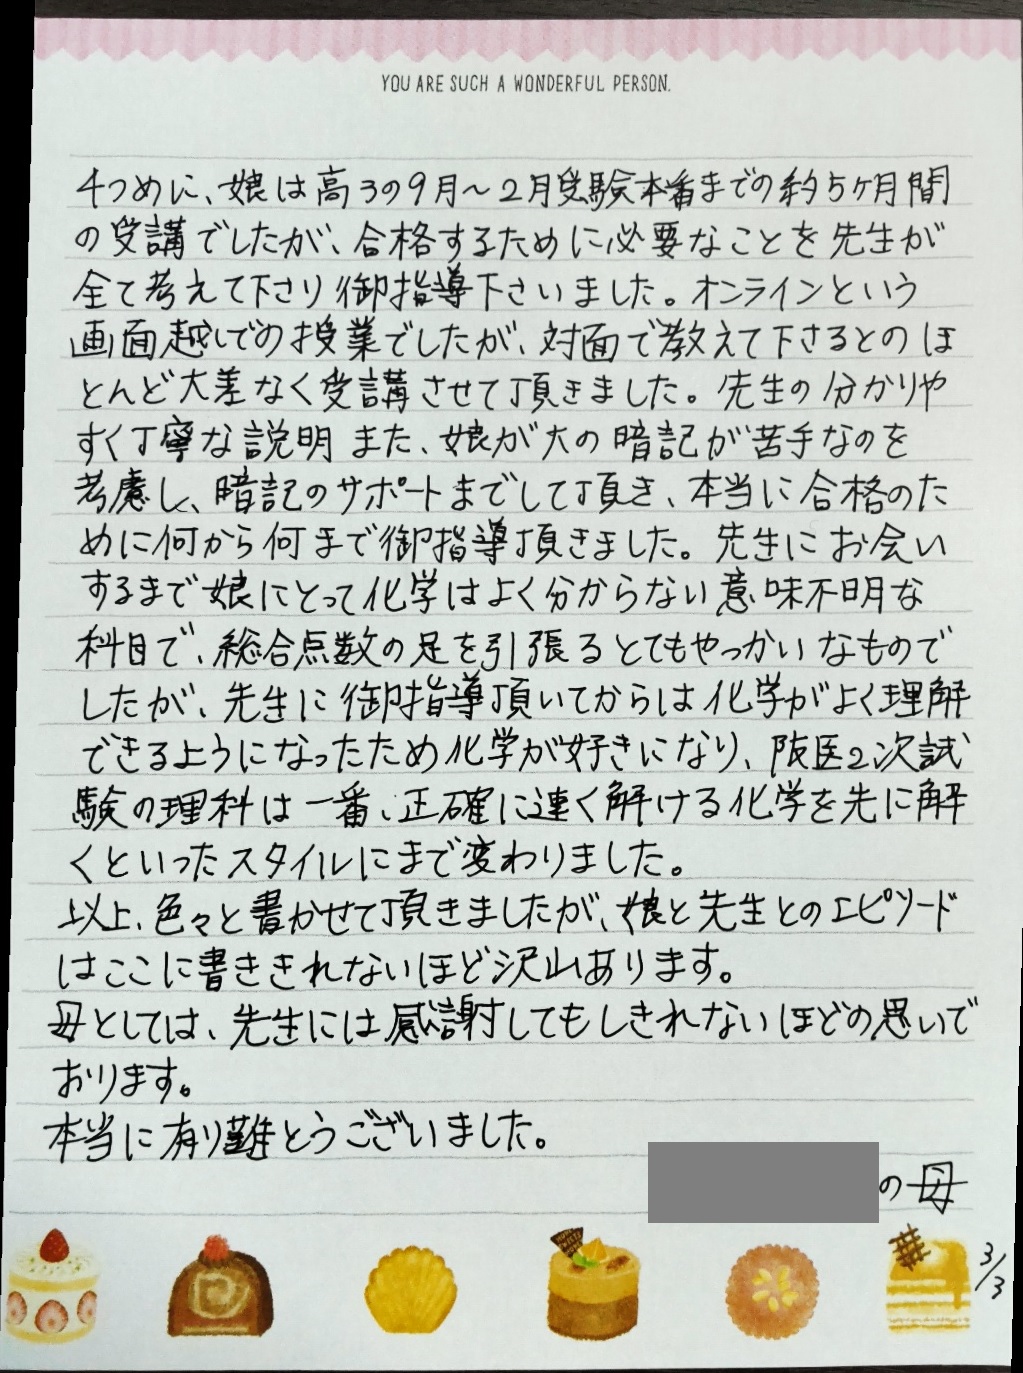 YOU ARE SUCH A WONDERFUL PERSON.
4つめに、娘は高3の9月～2月受験本番までの約5ヶ月間
の受講でしたが、合格するために必要なことを先生が
全て考えて下さり御指導下さいました。オンラインという
画面越しでの授業でしたが、対面で教えて下さるとのほ
とんど大差なく受講させて頂きました。先生の分かりや
すく丁寧な説明また、娘が大の暗記が苦手なのを
考慮し、暗記のサポートまでして頂き、本当に合格のた
めに何から何まで御指導頂きました。先生にお会い
するまで娘にとって化学はよく分からない意味不明な
科目で、総合点数の足を引張るとてもやっかいなもので
したが、先生に御指導頂いてからは化学がよく理解
できるようになったため化学が好きになり、阪医2次試
験の理科は一番、正確に速く解ける化学を先に解
くといったスタイルにまで変わりました。
以上、色々と書かせて頂きましたが、娘と先生とのエピソード
はここに書ききれないほど沢山あります。
母としては、先生には感謝してもしきれないほどの思いで
おります。
本当に有り難とうございました。
の母
3/3